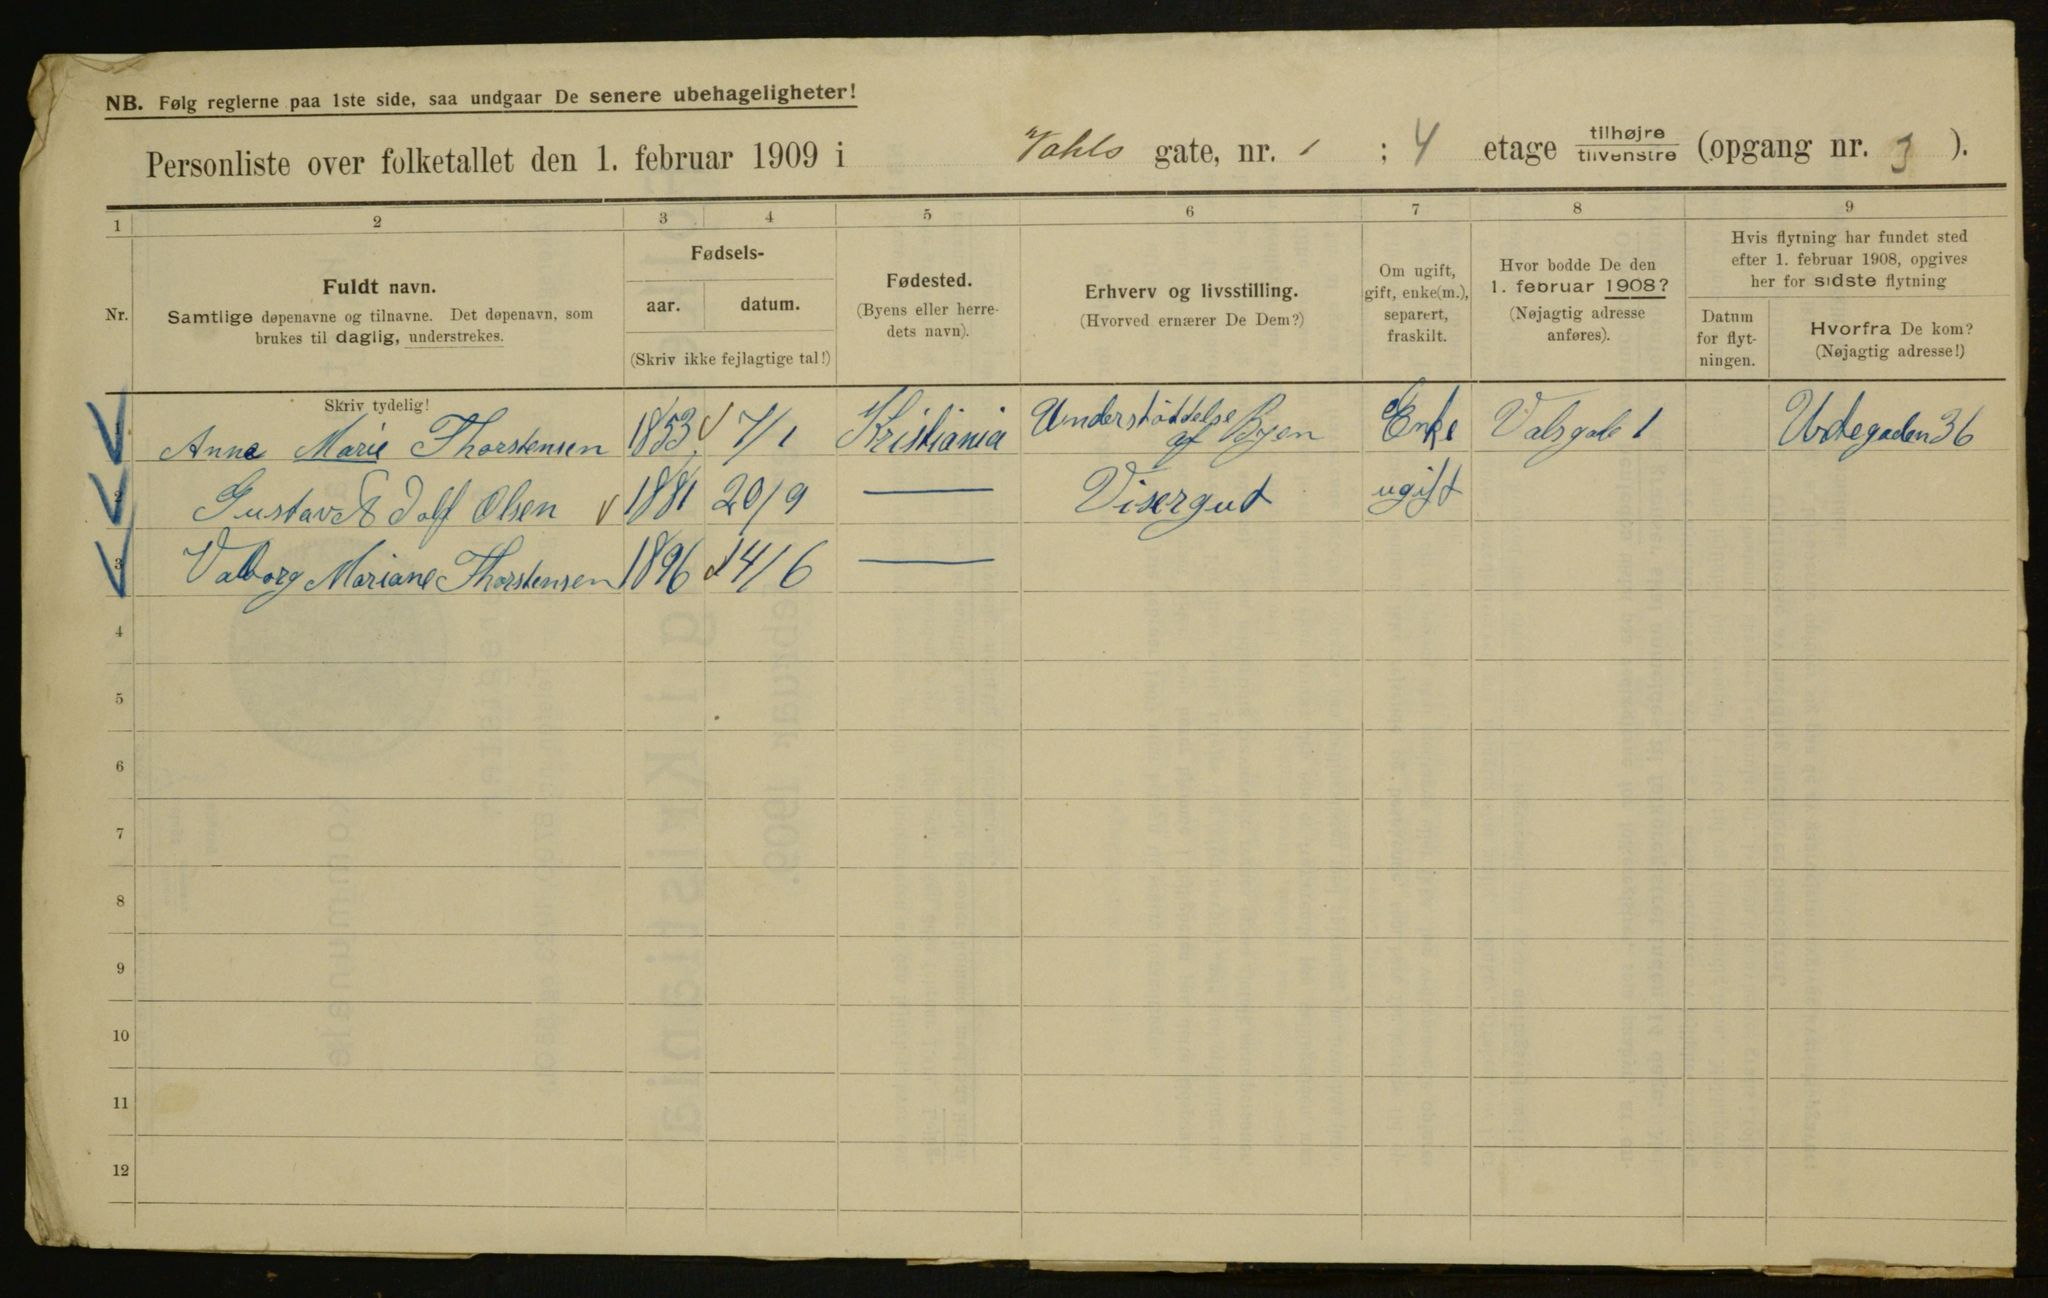 NB. Følg reglerne paa 1ste side, saa undgaar De senere ubehageligheter!
Personliste over folketallet den 1. februar 1909 i Vahls gate, nr. 1 ; 4 etage tilhøjre tilvenstre (opgang nr. 3 ).
1 2 3 4 5 6 7 8 9
Nr.
Fuldt navn.
Samtlige døpenavne og tilnavne. Det døpenavn, som
brukes til daglig, understrekes.
Fødsels-
aar. datum.
(Skriv ikke fejlagtige tal!)
Fødested.
(Byens eller herre-
dets navn).
Erhverv og livsstilling.
(Hvorved ernærer De Dem?)
Om ugift,
gift, enke(m.),
separert,
fraskilt.
Hvor bodde De den
1. februar 1908?
(Nøjagtig adresse
anføres).
Hvis flytning har fundet sted
efter 1. februar 1908, opgives
her for sidste flytning
Datum
for flyt-
ningen.
Hvorfra De kom?
(Nøjagtig adresse!)
Skriv tydelig!
1 Anna Marie Thorstensen 1853 7/1 Kristiania Understøttelse af Byen Enke Valsgade 1
2 Gustav Adolf Olsen 1881 20/9 — Visergut ugift
3 Valborg Mariane Thorstensen 1896 14/6 —
4
5
6
7
8
9
10
11
12